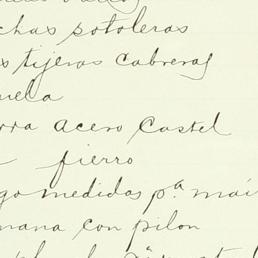 chas sotoleras
s tijeras cabreras
uela
rra acero Castel
fierro
go medidas pª maí
mana con pilon